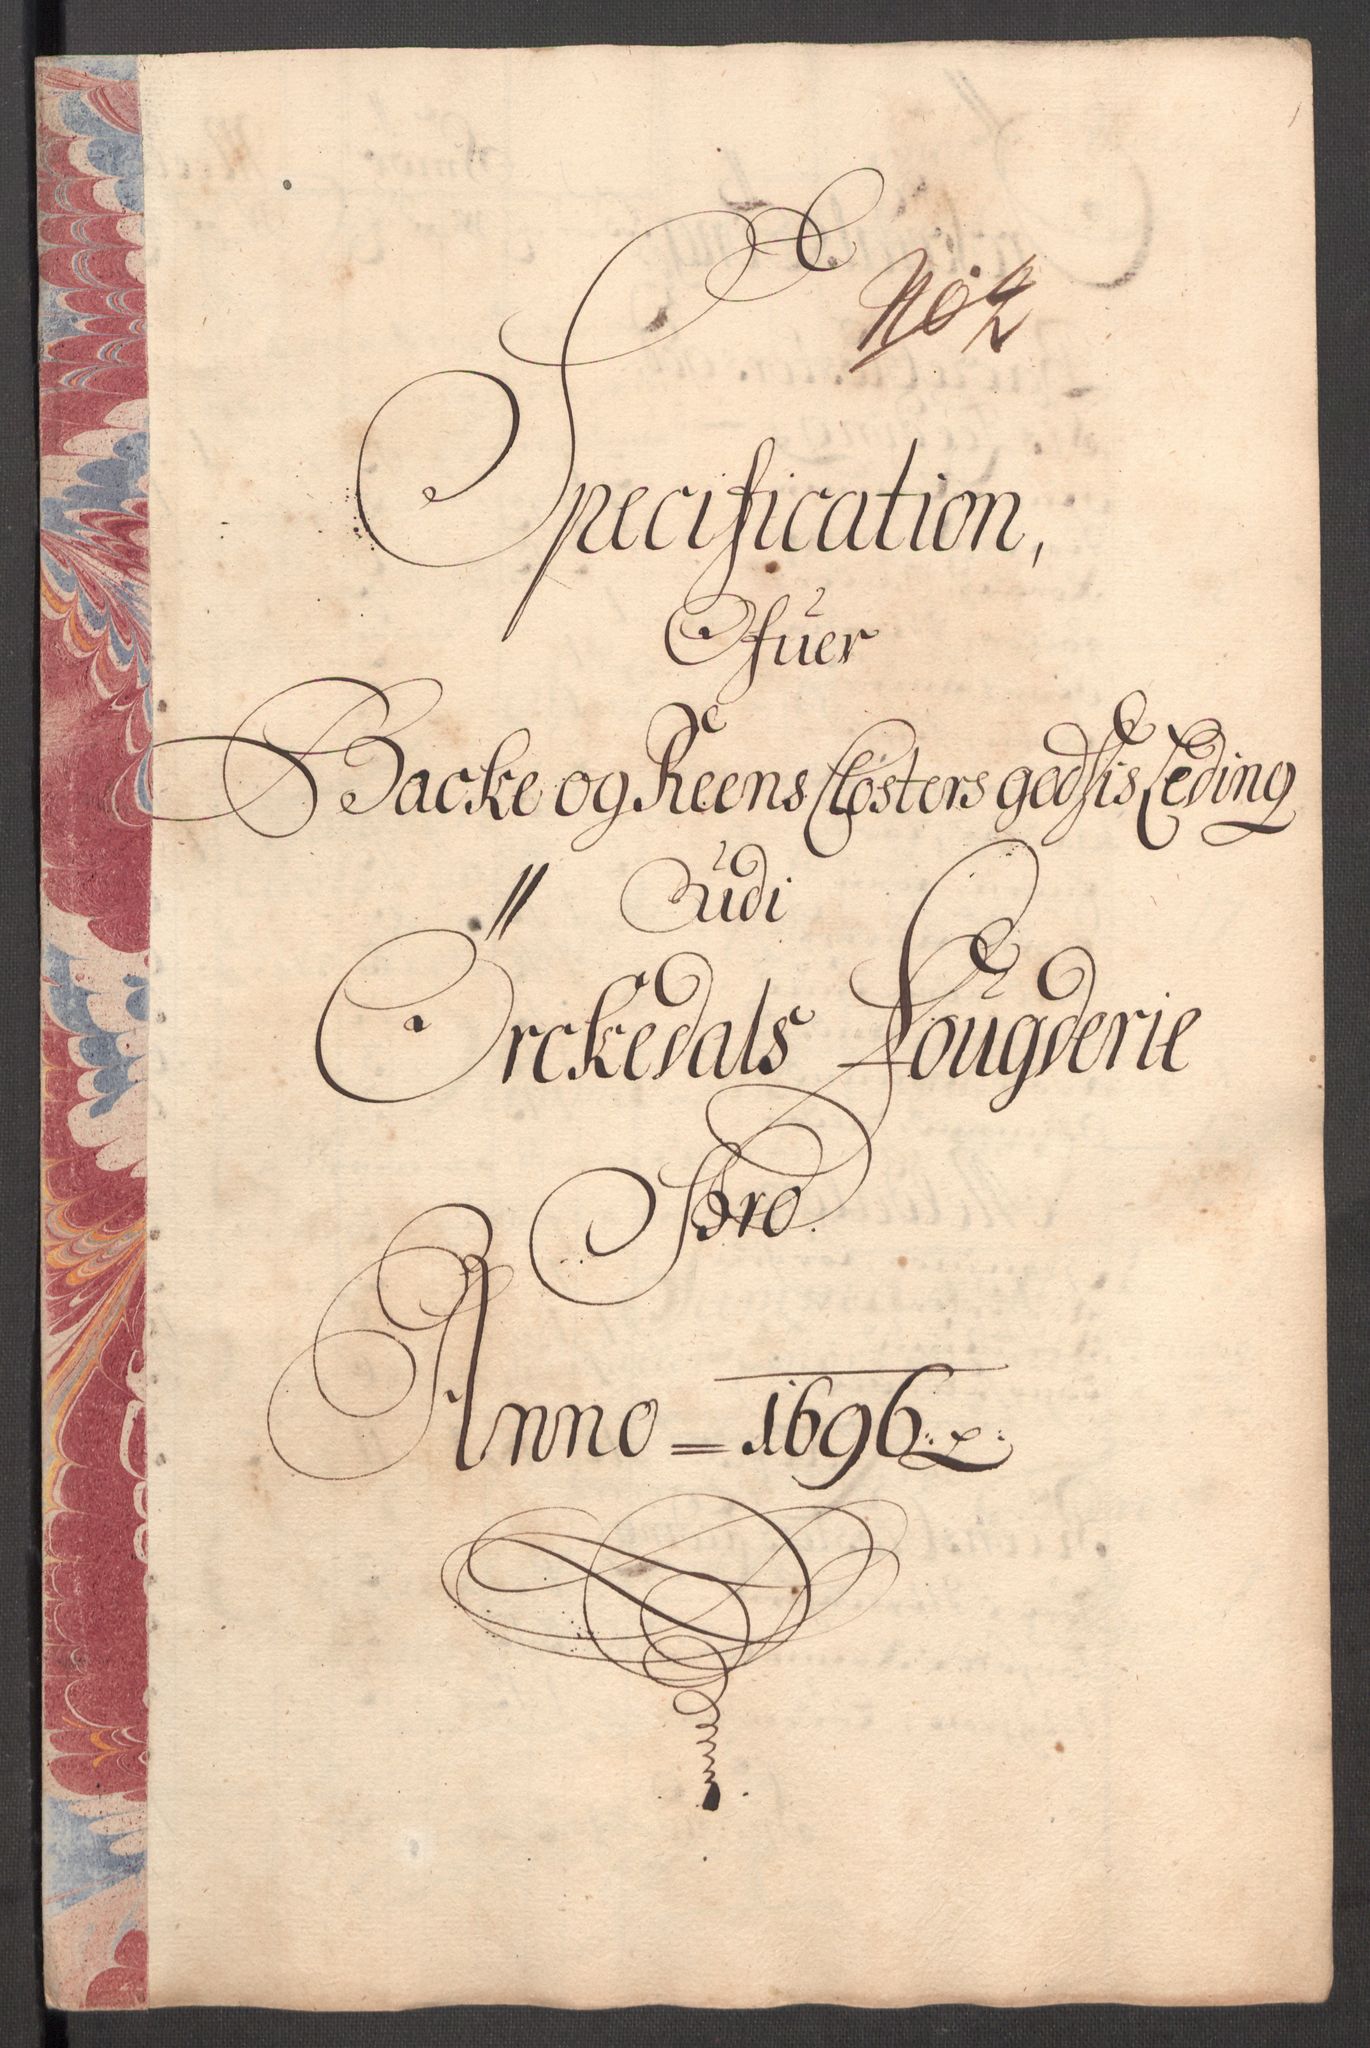 No 2
Specification,
Ofuer
Backe og Reens Closters godsis Leding
Udi
Orckedals Fougderie
Pro
Anno = 1696